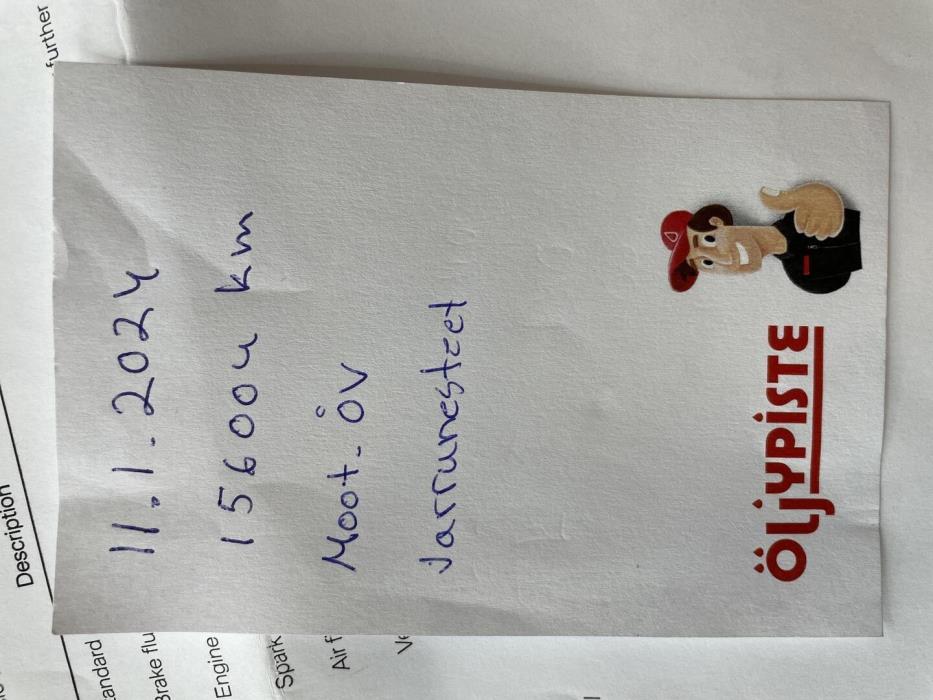 11.1.2024
156004 km
Moot-öv
Jarrunesteet
ÖLJYPISTE
further
Description
andard
Brake flu
Engine
Spark
Air f